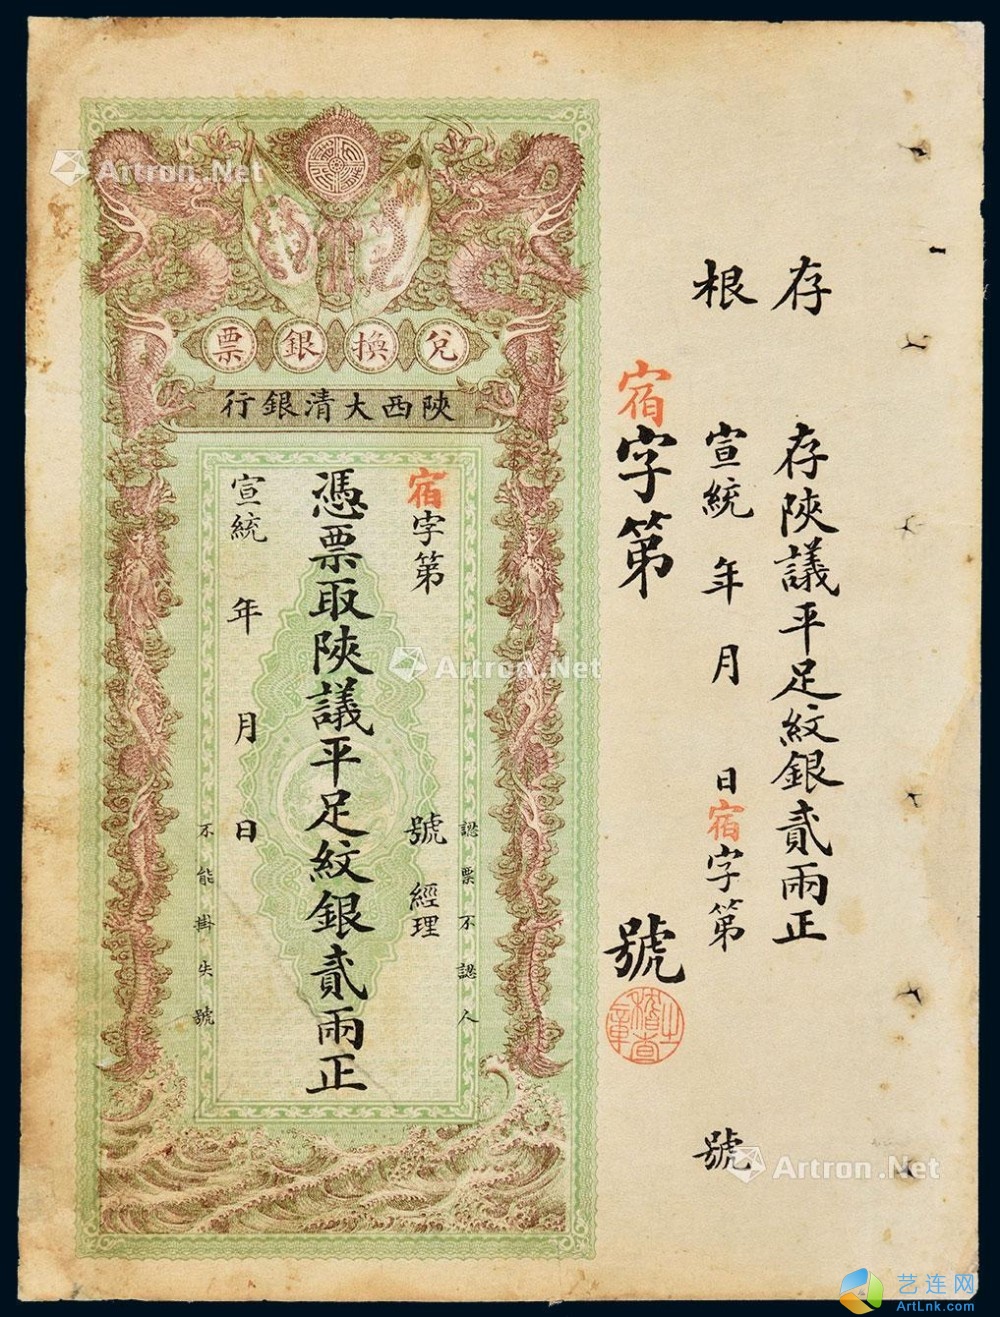 兌換銀票
陝西大清銀行
認票不認人
宿字第 號 經理
憑票取陝議平足紋銀貳兩正
宣統 年 月 日
不能掛失號
存根
存陝議平足紋銀貳兩正
宣統 年 月 日 宿字第 號
宿字第 號
稽查之章
Artron.Net
Artron.Net
Artron.Net
艺连网
ArtLnk.com